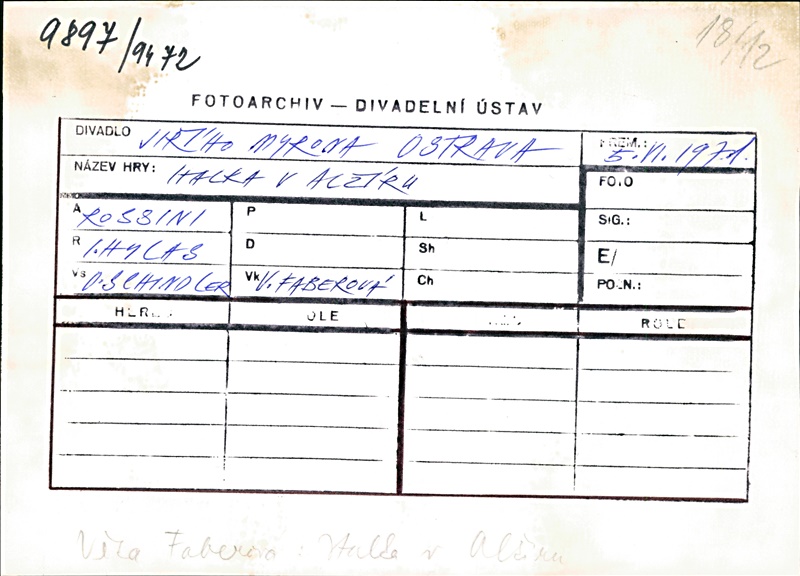 9897/9472
18/12
FOTOARCHIV — DIVADELNÍ ÚSTAV
DIVADLO JIŘÍHO MYRONA OSTRAVA
PREM.: 5. VI. 1971.
NÁZEV HRY: ITALKA V ALŽÍRU
FOTO
A ROSSINI P L SIG.:
R I. HYLAS D Sh E/
Vs O. SCHINDLER Vk V. FABEROVÁ Ch POZN.:
HEREC ROLE ROLE
Věra Faberová: Italka v Alžíru